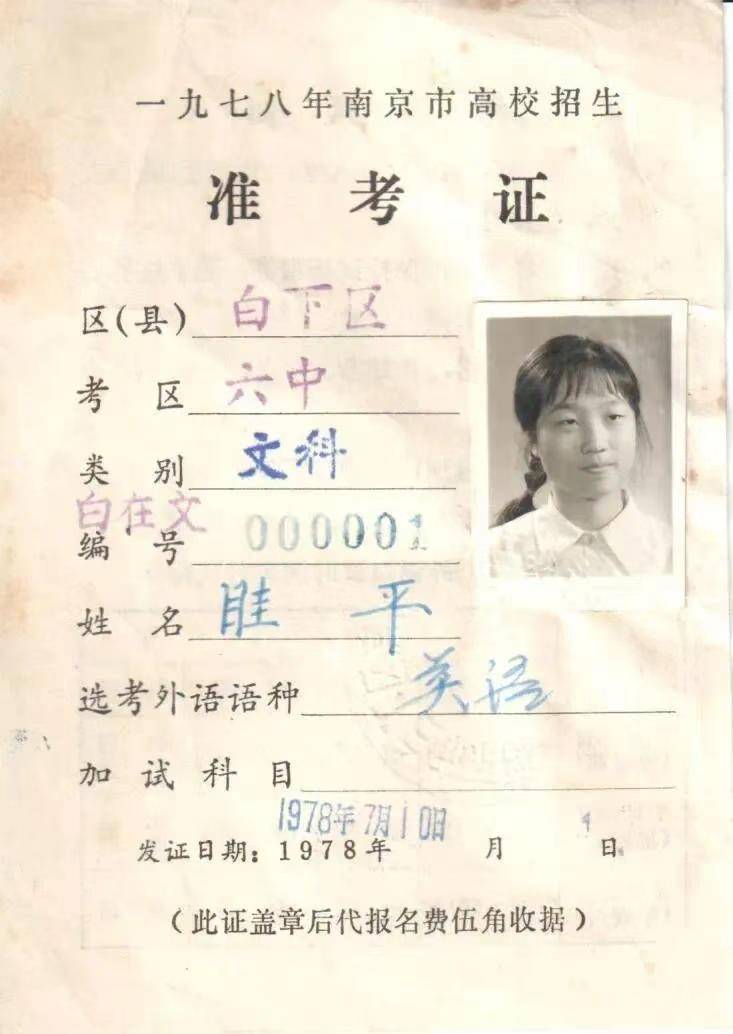 一九七八年南京市高校招生
准考证
区(县) 白下区
考区 六中
类别 文科
白在文
编号 000001
姓名 眭平
选考外语语种 英语
加试科目
1978年7月10日
发证日期：1978年 月 日
（此证盖章后代报名费伍角收据）